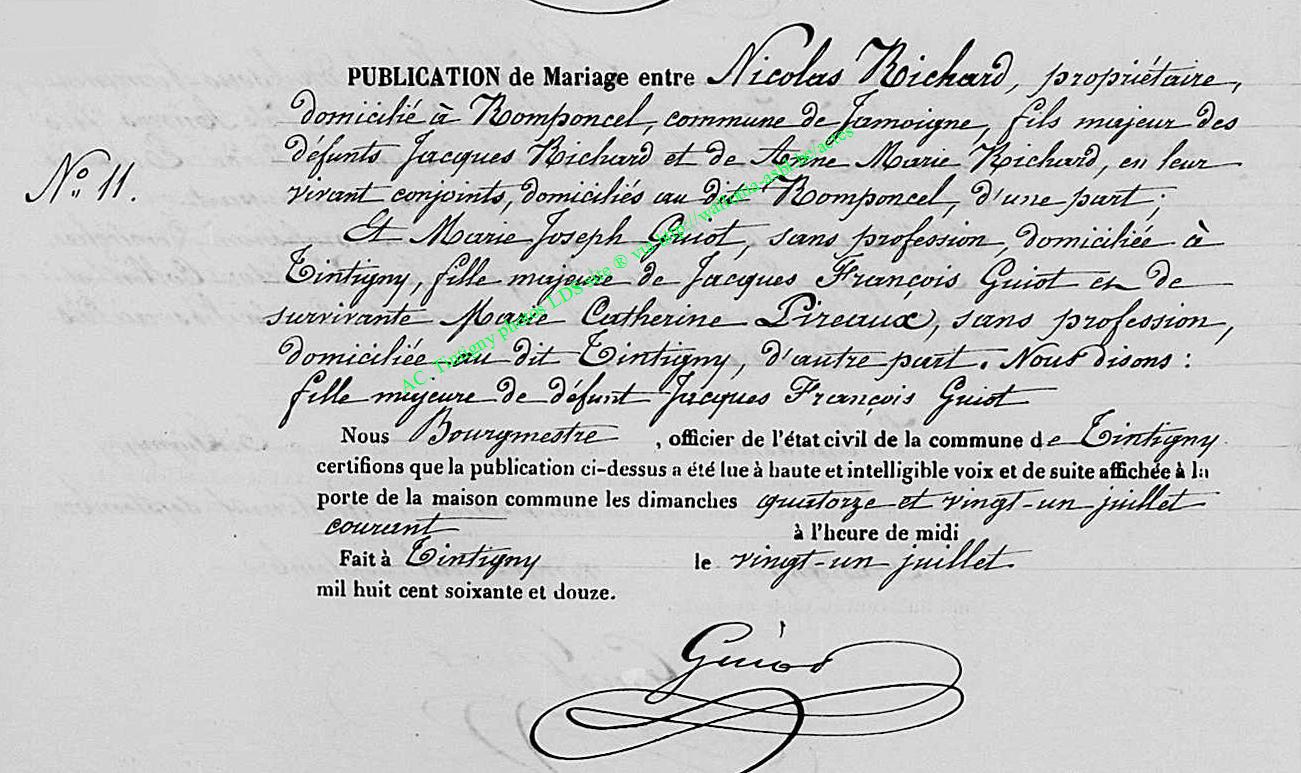 PUBLICATION de Mariage entre Nicolas Richard, propriétaire,
domicilié à Romponcel, commune de Jamoigne, fils majeur des
défunts Jacques Richard et de Anne Marie Richard, en leur
Nº. 11.
vivant conjoints, domiciliés au dit Romponcel, d'une part;
Et Marie Joseph Guiot, sans profession, domiciliée à
Tintigny, fille majeure de Jacques François Guiot et de
survivante Marie Catherine Pireaux, sans profession,
domiciliée au dit Tintigny, d'autre part. Nous disons:
fille majeure de défunt Jacques François Guiot
Nous Bourgmestre, officier de l'état civil de la commune de Tintigny
certifions que la publication ci-dessus a été lue à haute et intelligible voix et de suite affichée à la
porte de la maison commune les dimanches quatorze et vingt-un juillet
courant à l'heure de midi
Fait à Tintigny le vingt-un juillet
mil huit cent soixante et douze.
Guiot
AC. Tintigny photos LDS site ® via http://wallonia-asbl.be/actes